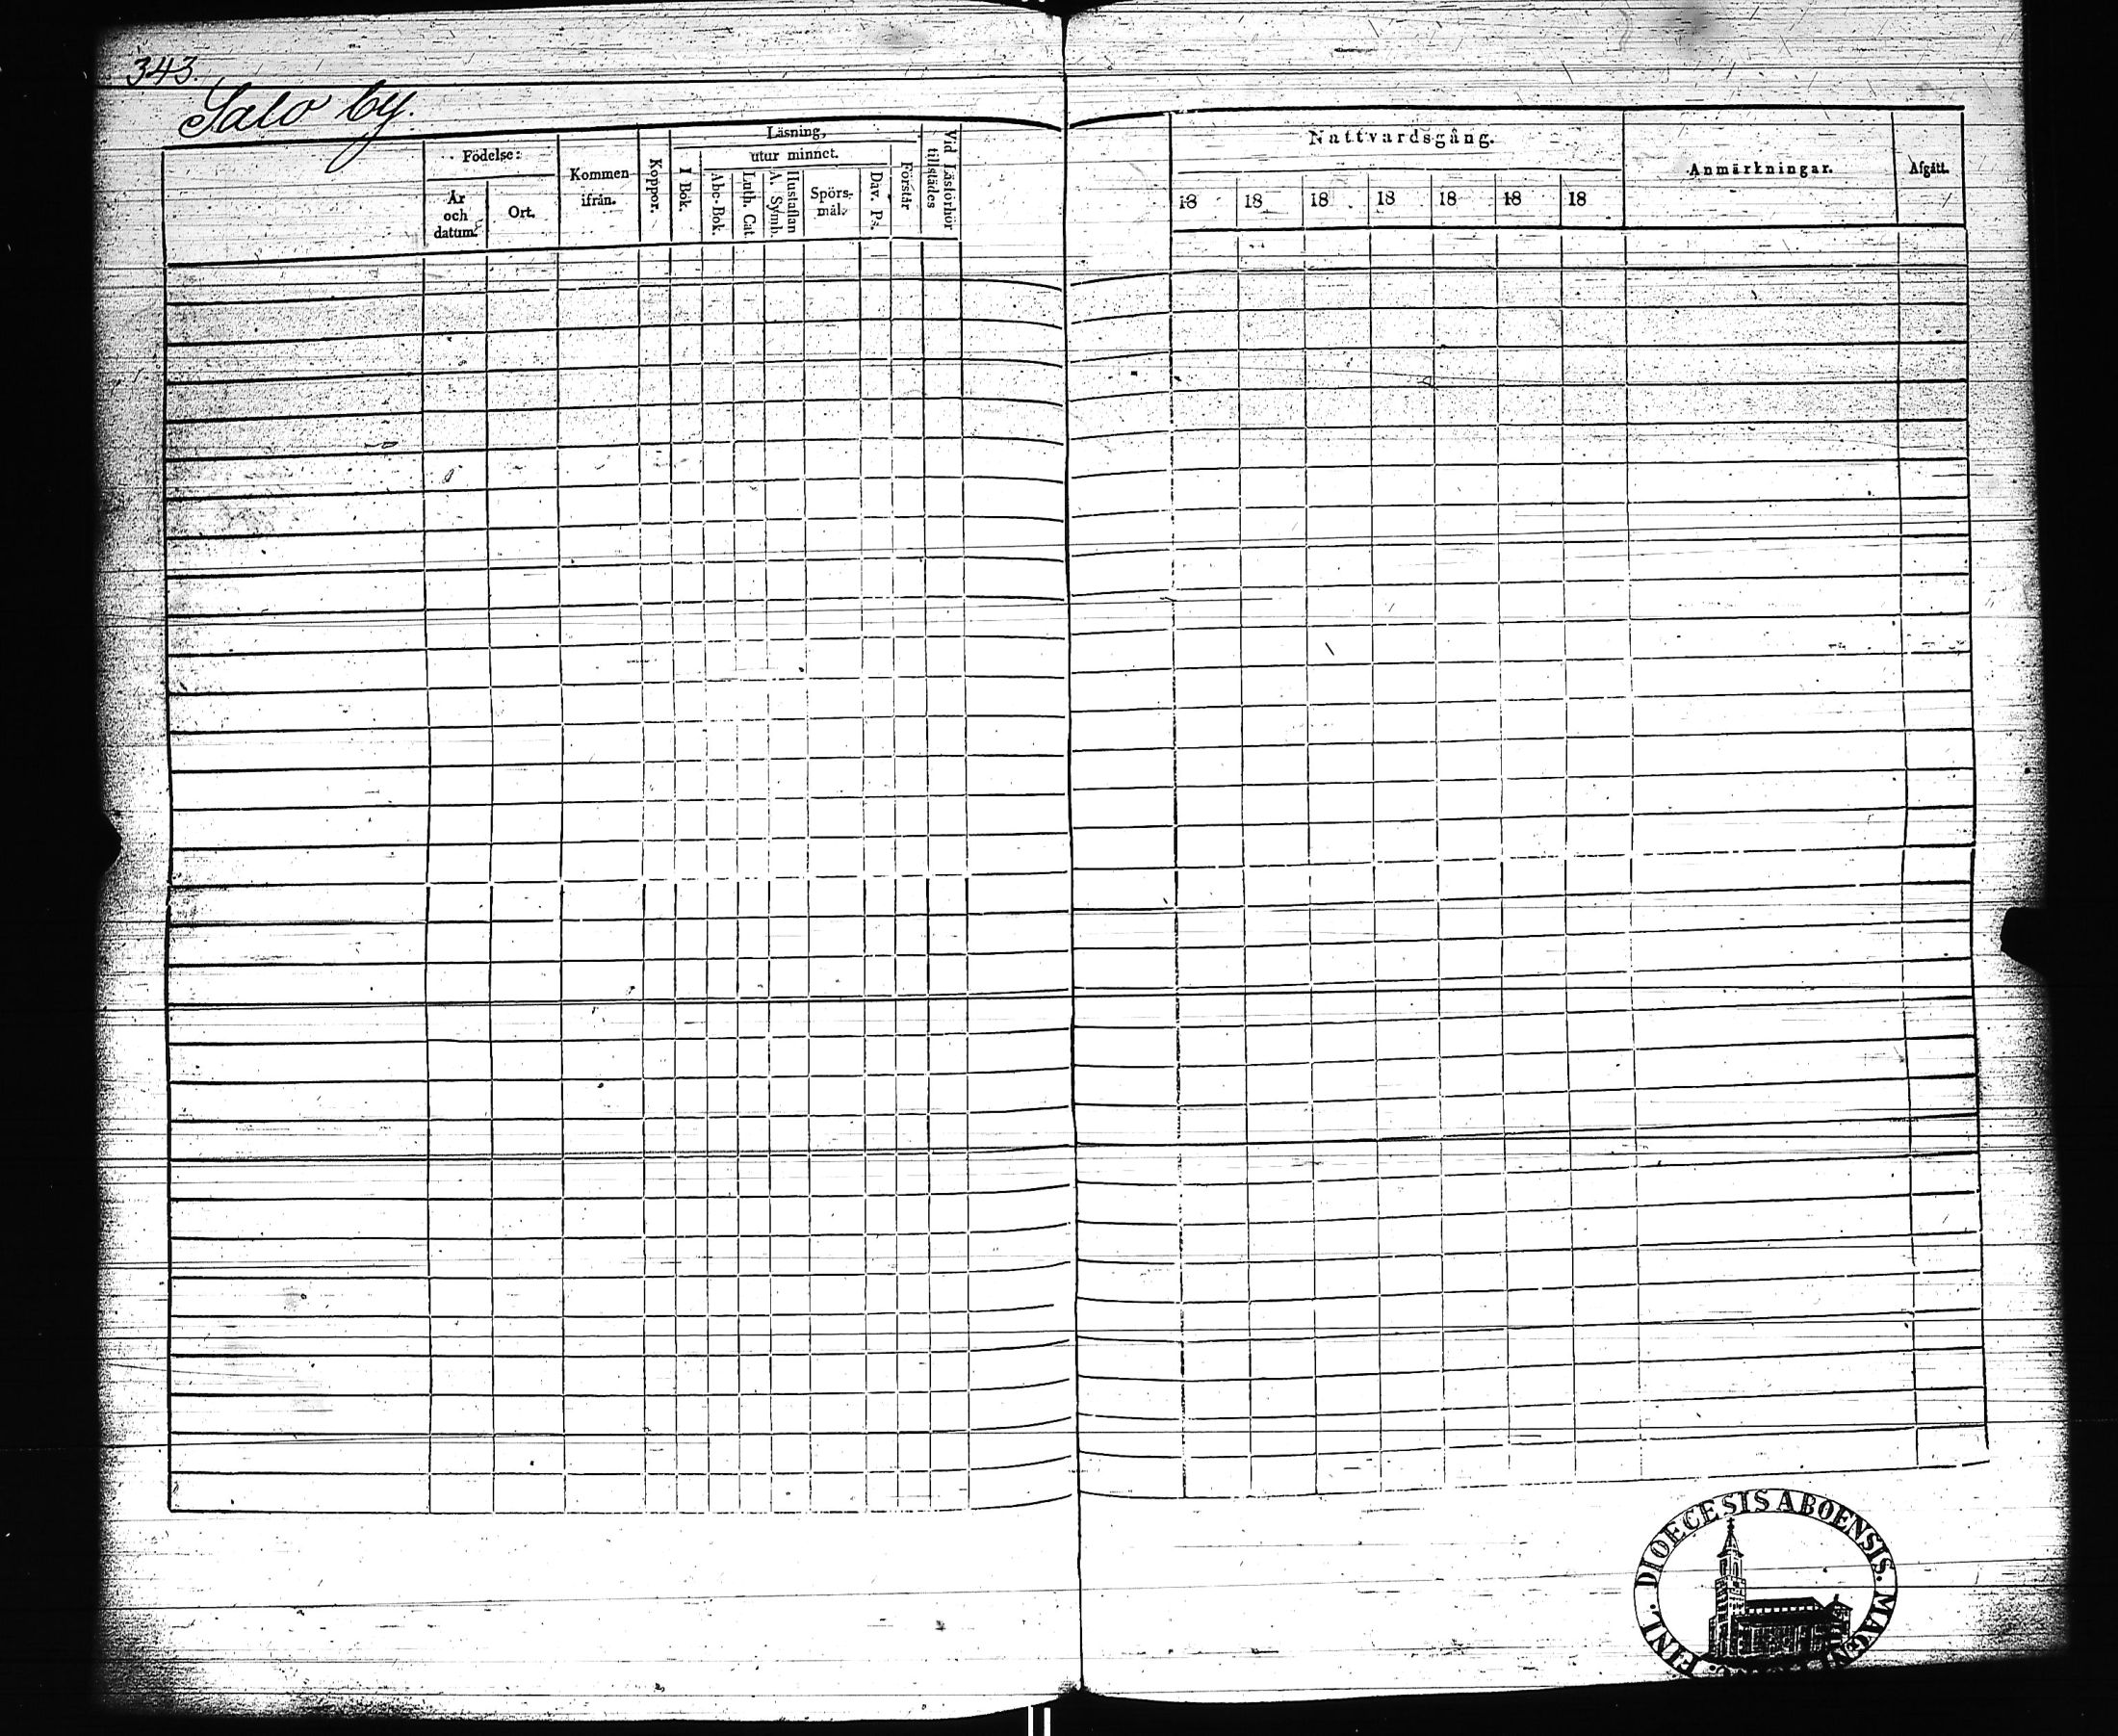 343.
Salo by.
Födelse:
År
och
datum.
Ort.
Kommen
ifrån.
Koppor.
Läsning,
utur minnet.
I Bok.
Abc-Bok.
Luth. Cat.
A. Symb.
Hustaflan
Spörs-
mål.
Dav. Ps.
Förstår
Vid Läsförhör
tillstädes
Nattvardsgång.
18 18 18 18 18 18 18
Anmärkningar.
Afgått.
FINL. DIOECESIS ABOENSIS. MAGNI